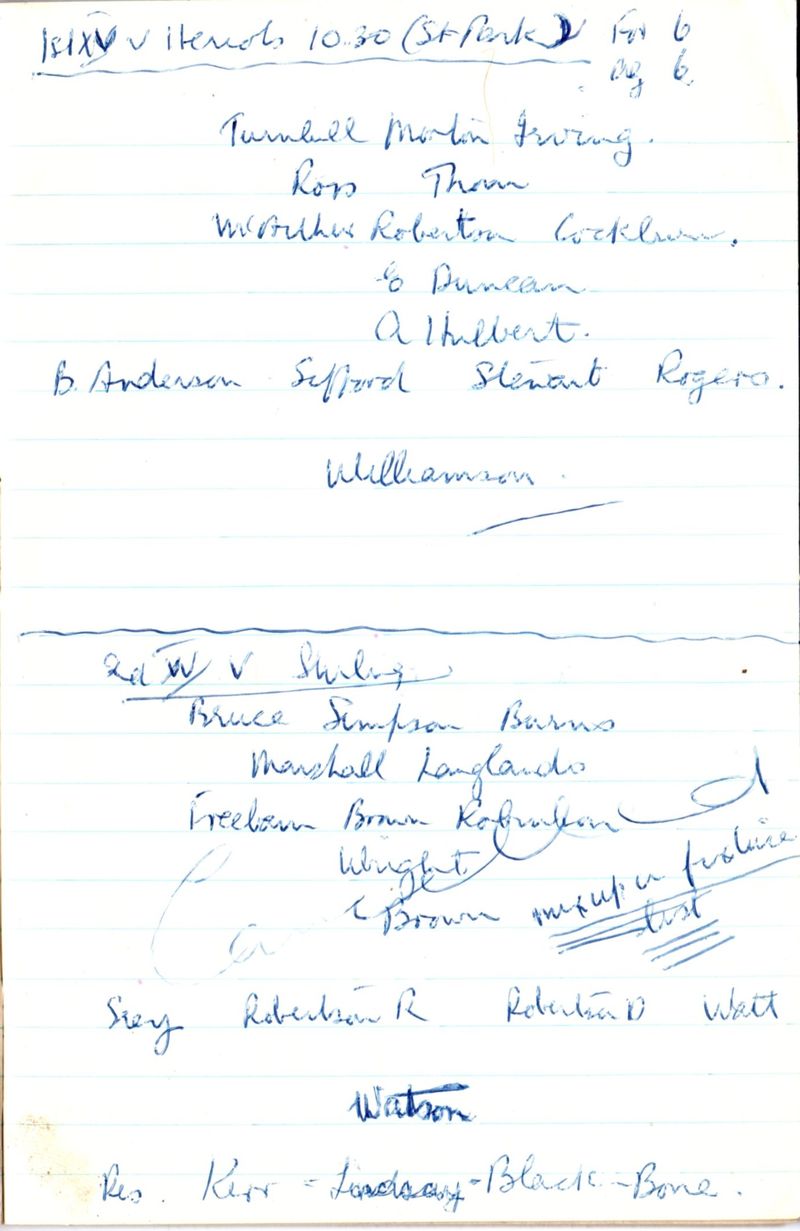 1st XV v Heriots 10.30 (St Park) For 6
Ag 6.
Turnbull Morton Irving.
Ross Thom
McArthur Roberton Cockburn.
G Duncan
A Hulbert.
B. Anderson Stewart Rogers.
Williamson.
2d XV v Stirling
Bruce Simpson Burns
Marshall Langlands
Freebairn Brown
Wright
Brown mixup in fixture
list
Robertson R Robertson D Watt
Watson
Res. Kerr - Lindsay - Black - Bone.